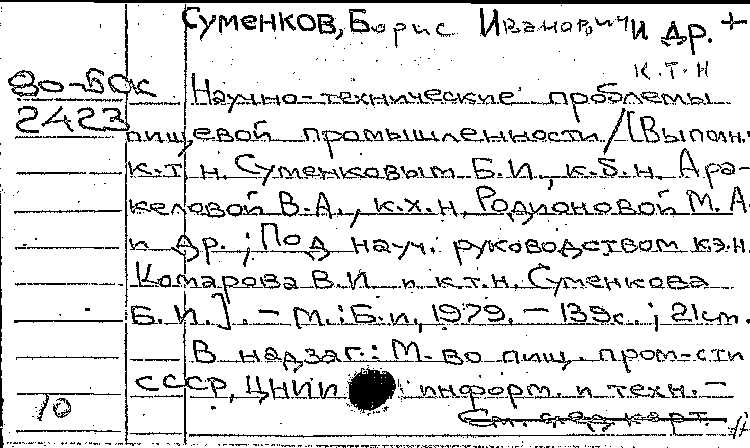 Суменков, Борис Иванович и др. +
к.т.н
80-50к
2423
Научно-технические проблемы
пищевой промышленности / [Выполн.
к.т.н. Суменковым Б.И., к.б.н. Ара-
келовой В.А., к.х.н. Родионовой М.А.
и др.; Под науч. руководством к.э.н.
Комарова В.И. и к.т.н. Суменкова
Б.И.]. - М.: Б.и, 1979. - 139с.; 21см.
В надзаг.: М-во пищ. пром-сти
СССР, ЦНИИ информ. и техн.-
См. след. карт.
10